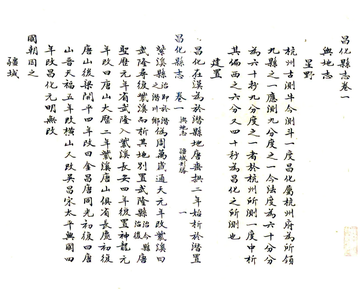 昌化縣志卷一
輿地志
星野
杭州古測斗今測斗一度昌化屬杭州府為所領
九縣之一應測九分度之一今法度為六十分分
為六十秒九分度之一者於杭州所測一度中析
其偏西之六分又四十秒為昌化之所測也
建置
昌化在漢為於潛縣地唐垂拱二年始析於潛置
昌化縣志 卷一 輿地志 疆域 一
紫溪縣 周萬歲通天元年改紫溪曰
武隆尋復紫溪而析其地別置武隆縣 唐
聖歷元年省武隆入紫溪長安四年復置神龍元
年改曰唐山大曆二年紫溪唐山俱省長慶初復
唐山後梁開平四年改曰金昌唐同光初復曰唐
山晉天福五年改橫山人改吳昌宋太平興國四
年改昌化元明無改
國朝因之
疆域